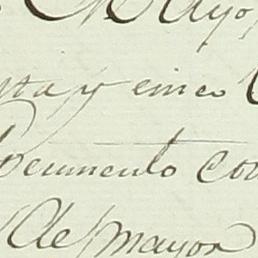 Mayo
nta y cinco
Documento co
de mayor